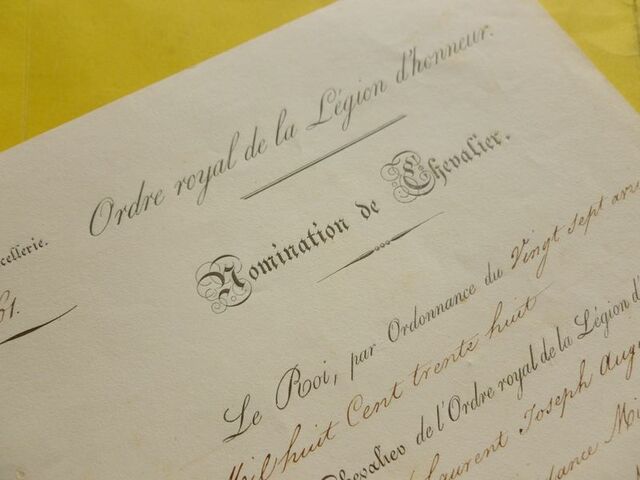 Ordre royal de la Légion d'honneur.
Nomination de Chevalier.
cellerie.
61.
Le Roi, par Ordonnance du Vingt sept avri
Mil huit Cent trente huit
Chevalier de l'Ordre royal de la Légion d'
Laurent Joseph Aug
dance Mi